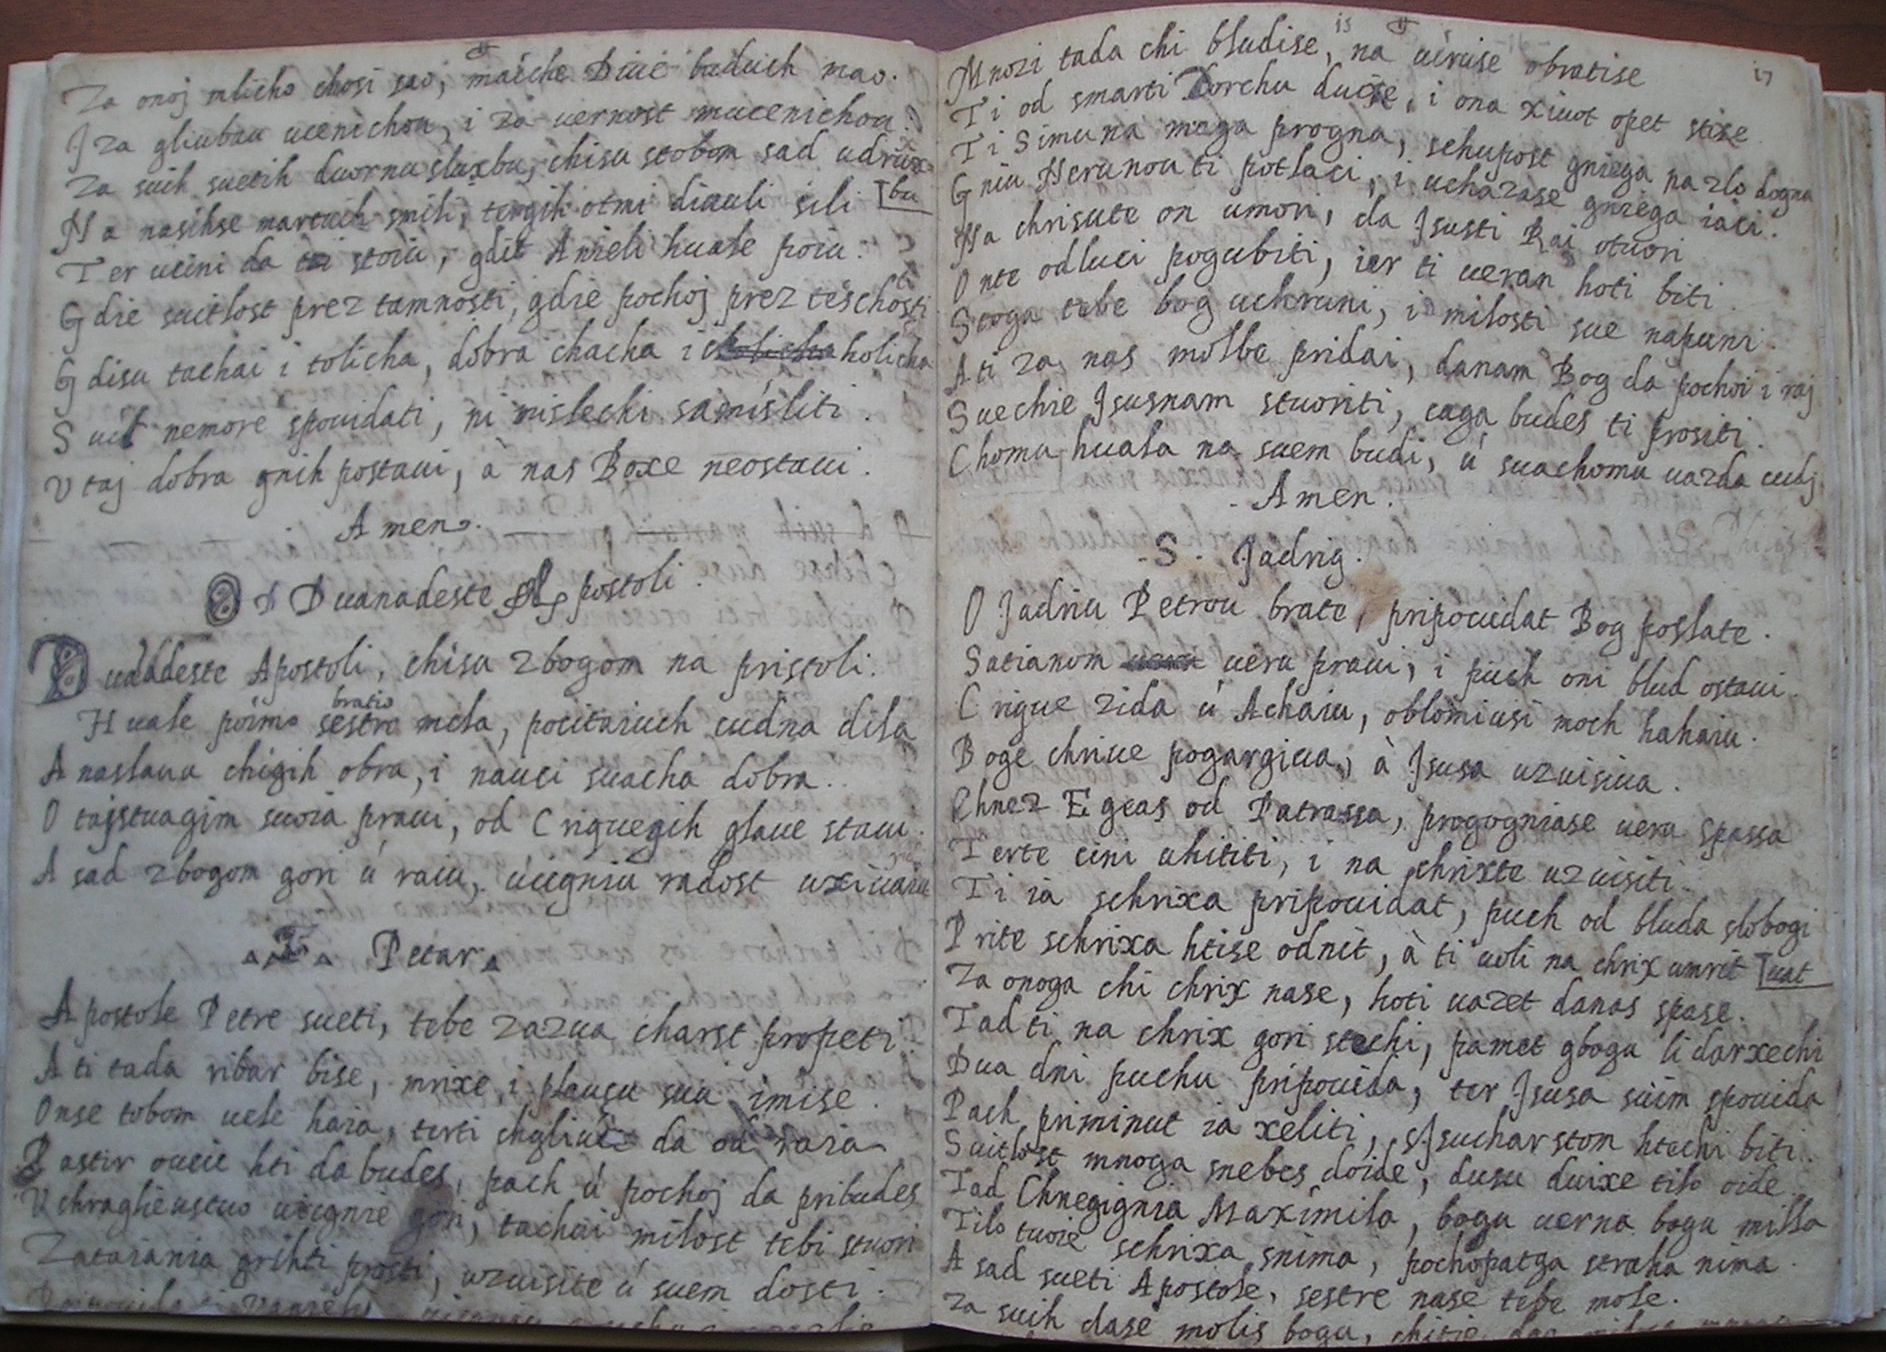 Za onoj mlicho chosi sao, maiche Diue buduch mao.
I za gliubau ucenichou, i za uernost mucenichou.
Za suih suetih duornu sluxbu, chisu stobom sad udrux
bu
Na nasihse martuih smili, tergih otmi diauli sili
Ter ucini da tu stoiu, gdit Anieli huale poiu.
Gdie suitlost prez tamnosti, gdie pochoj prez teschosti
Gdisu tachai i tolicha, dobra chacha i holicha
Suit nemore spouidati, ni mislechi samisliti.
V taj dobra gnih postaui, à nas Boxe neostaui.
Amen.
OD Duanadeste Apostoli.
Duanadeste Apostoli, chisu zbogom na pristoli.
bratio
Huale poimo sestre mela, pocitaiuch cudna dila
Anaslaua chigih obra, i nauci suacha dobra.
O tajstuagim suoia praui, od Criquegih glaue staui.
A sad zbogom gori ù raiu, uicgniu radost uxiuaiu
Petar
Apostole Petre sueti, tebe zazua charst propeti.
A ti tada ribar bise, mrixe i plaucu suu imise.
Onse tobom uele haia, terti chgliuc da od raia
Pastir oucie hti da budes, pach ù pochoj da pribudes
V chraglieustuo uicgnie gori, tachui milost tebi stuori
Zataiania grihti prosti, uzuisite ù suem dosti.
15
17
Mnozi tada chi bludise, na uiruise obratise
Ti od smarti Dorchu ducse, i ona xiuot opet stise
Ti Simuna maga progna, schupost gniega na zlo dogna
Gniu Nerunou ti potlaci, i uchazase gniega iaci.
Na chrisute on umori, da Isusti Rai otuori
Onte odluci pogubiti, ier ti ueran hoti biti
Stoga tebe bog uchruni, i milosti sue napuni.
A ti za nas molbe pridai, danam Bog da pochoi i raj
Suechie Isusnam stuoriti, caga budes ti prositi.
Chomu huala na suem budi, ù suachomu uazda cudj
Amen.
S. Jadrig.
O Jadriu Petrou brate, pripouidat Bog poslate.
Satianom uéru praui, i puch oni blud ostaui.
Crigue zida ù Achaiu, oblomiusi moch hahaiu.
Boge chriue pogargiua, à Isusa uzuisiua.
Chnez Egeas od Patrassa, progogniase ueru spassa
Terte cini uhititi, i na chrixte uzuisiti.
Ti ia schrixa pripouidat, puch od bluda slobogi
uat
Prite schrixa htise odnit, à ti uoli na chrix umrit
Za onoga chi chrix nase, hoti uazet danas spase.
Tad ti na chrix gori stechi, pamet gbogu li darxechi
Dua dni puchu pripouida, ter Isusa suim spouida
Pach priminut ia xeliti, sIsucharstom htechi biti.
Suitlost mnoga snebes doide, dusu duixe tilo oide
Tad Chnegignia Maximila, bogu uerna bogu milla
Tilo tuoie schrixa snima, pochopatga straha nima.
A sad sueti Apostole, sestre nase tebe mole.
Za suih dase molis bogu,